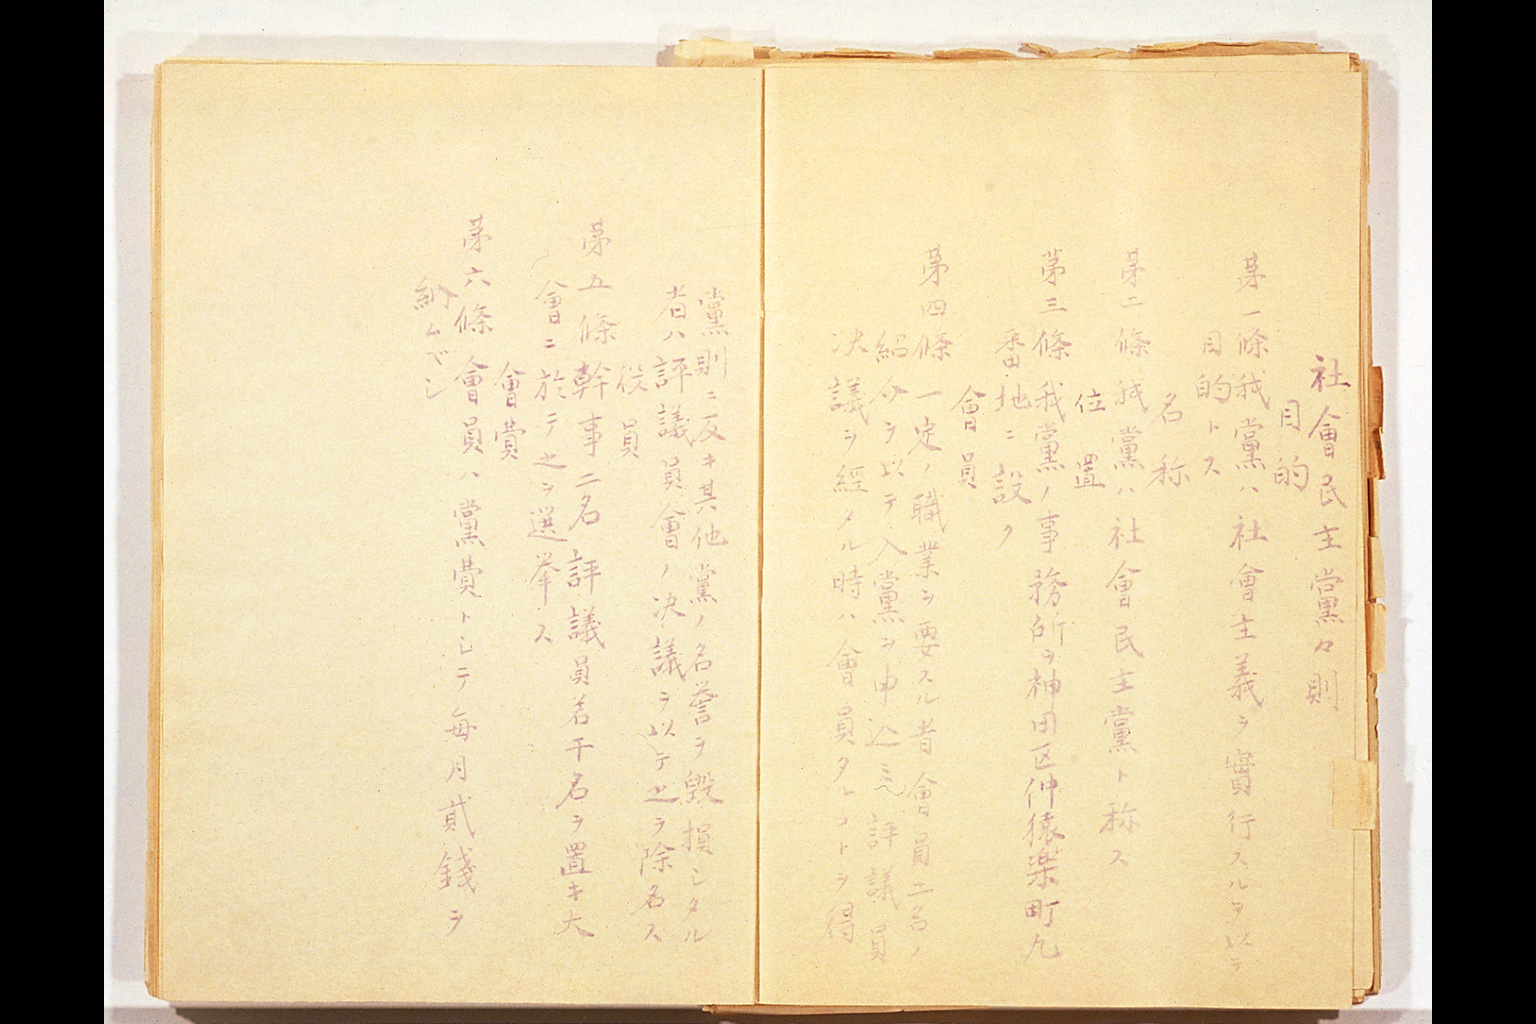 社會民主黨々則
目的
第一條我黨ハ社會主義ヲ實行スルヲ以テ
目的トス
名称
第二條我黨ハ社會民主黨ト称ス
位置
第三條我黨ノ事務所ヲ神田区仲猿楽町九
番地ニ設ク
會員
第四條一定ノ職業ヲ要スル者會員二名ノ
紹介ヲ以テ入黨ヲ申込ミ評議員
決議ヲ経タル時ハ會員タルコトヲ得
黨則ニ反キ其他黨ノ名誉ヲ毀損シタル
者ハ評議員會ノ決議ヲ以テ之ヲ除名ス
役員
第五條幹事二名評議員若干名ヲ置キ大
會ニ於テ之ヲ選挙ス
會費
第六條會員ハ黨費トシテ毎月貳錢ヲ
納ムベシ